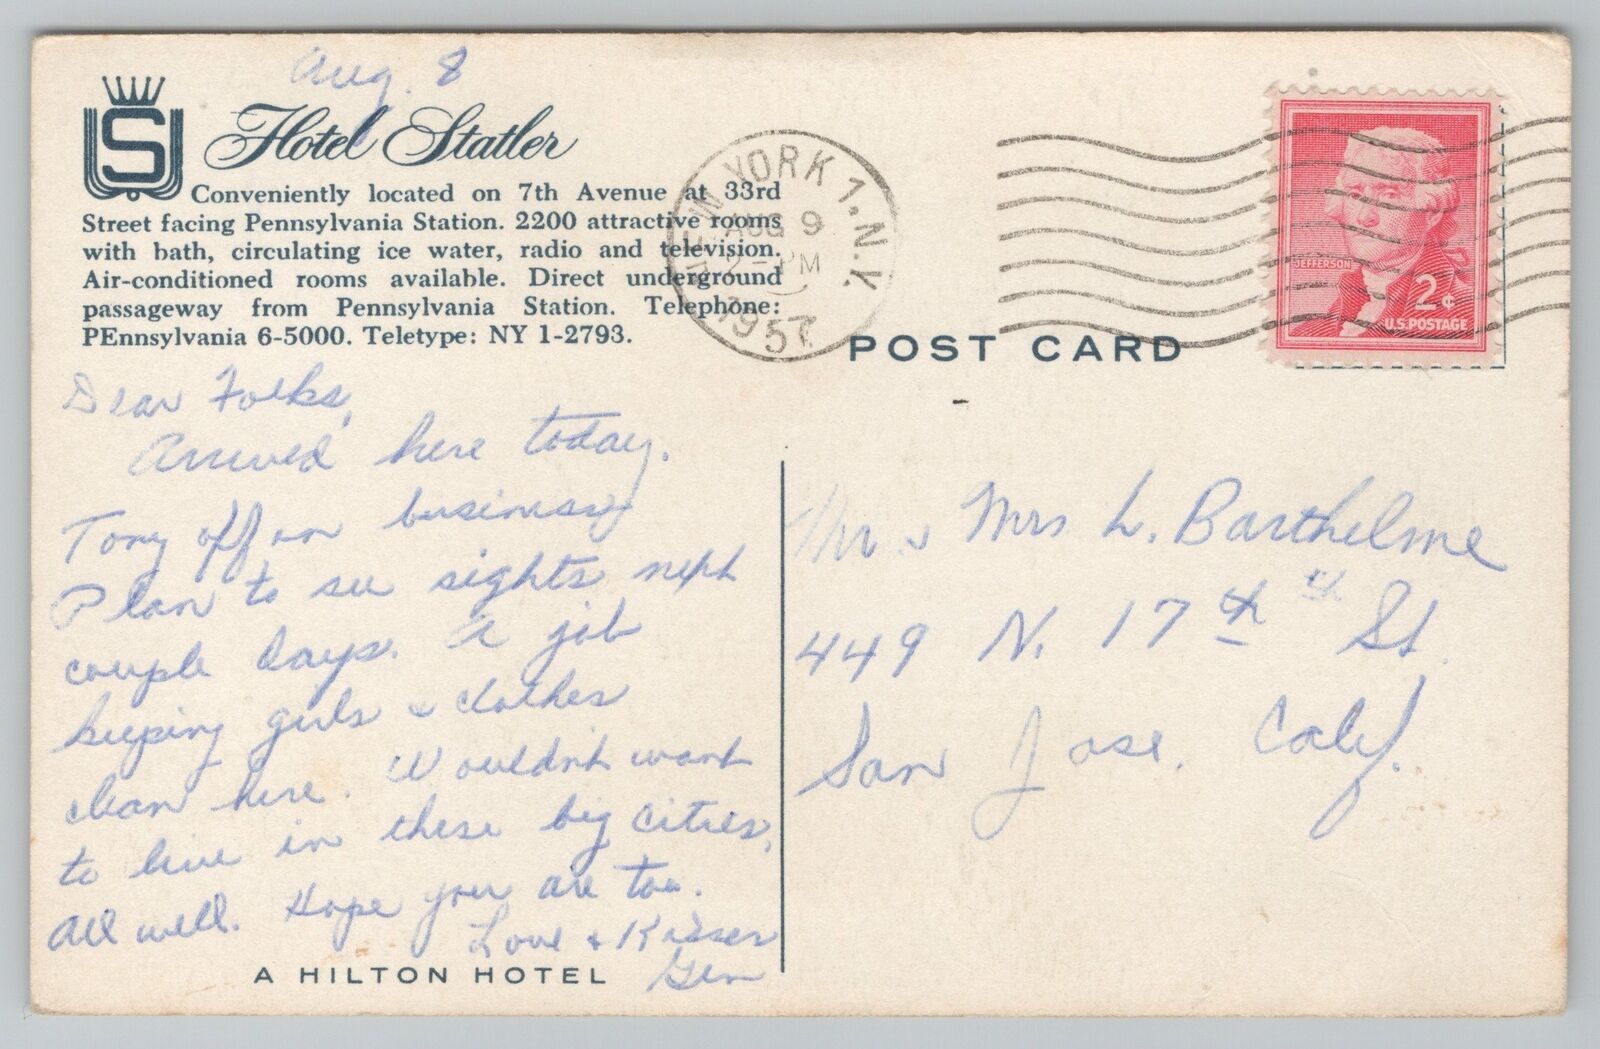 Aug. 8
S
Hotel Statler
Conveniently located on 7th Avenue at 33rd
Street facing Pennsylvania Station. 2200 attractive rooms
with bath, circulating ice water, radio and television.
Air-conditioned rooms available. Direct underground
passageway from Pennsylvania Station. Telephone:
PEnnsylvania 6-5000. Teletype: NY 1-2793.
NEW YORK 1, N.Y.
AUG 9
2 - PM
1957
JEFFERSON
2¢
U.S. POSTAGE
POST CARD
Dear Folks,
Arrived here today.
Tony off on business
Plan to see sights next
couple days. A job
keeping girls & clothes
clean here. Wouldn't want
to live in these big cities,
All well. Hope you are too.
Love & Kisses
Gen
A HILTON HOTEL
Mr. & Mrs L. Barthelme
449 N. 17th St.
San Jose, Calif.